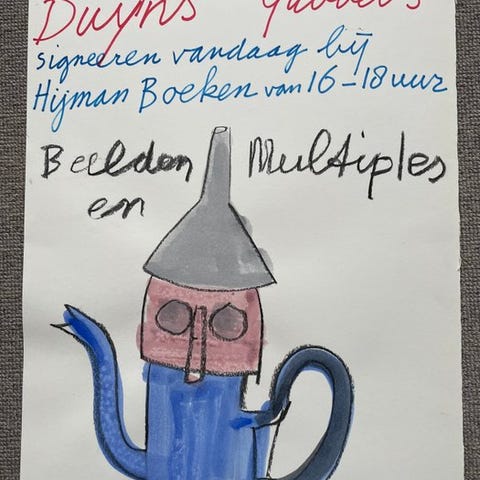 Duyns
signeeren vandaag bij
Hijman Boeken van 16-18 uur
Beelden Multiples
en